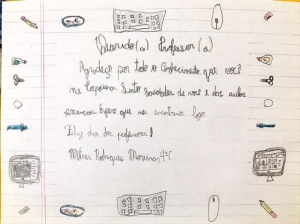 Querido(a) Professor(a)
Agradeço por todo o conhecimento que você
me Sinto saudades de você e das aulas
presenciais Espero que nos encontremos logo
Feliz dia do professor!
Rodrigues Moreno, 4ºC